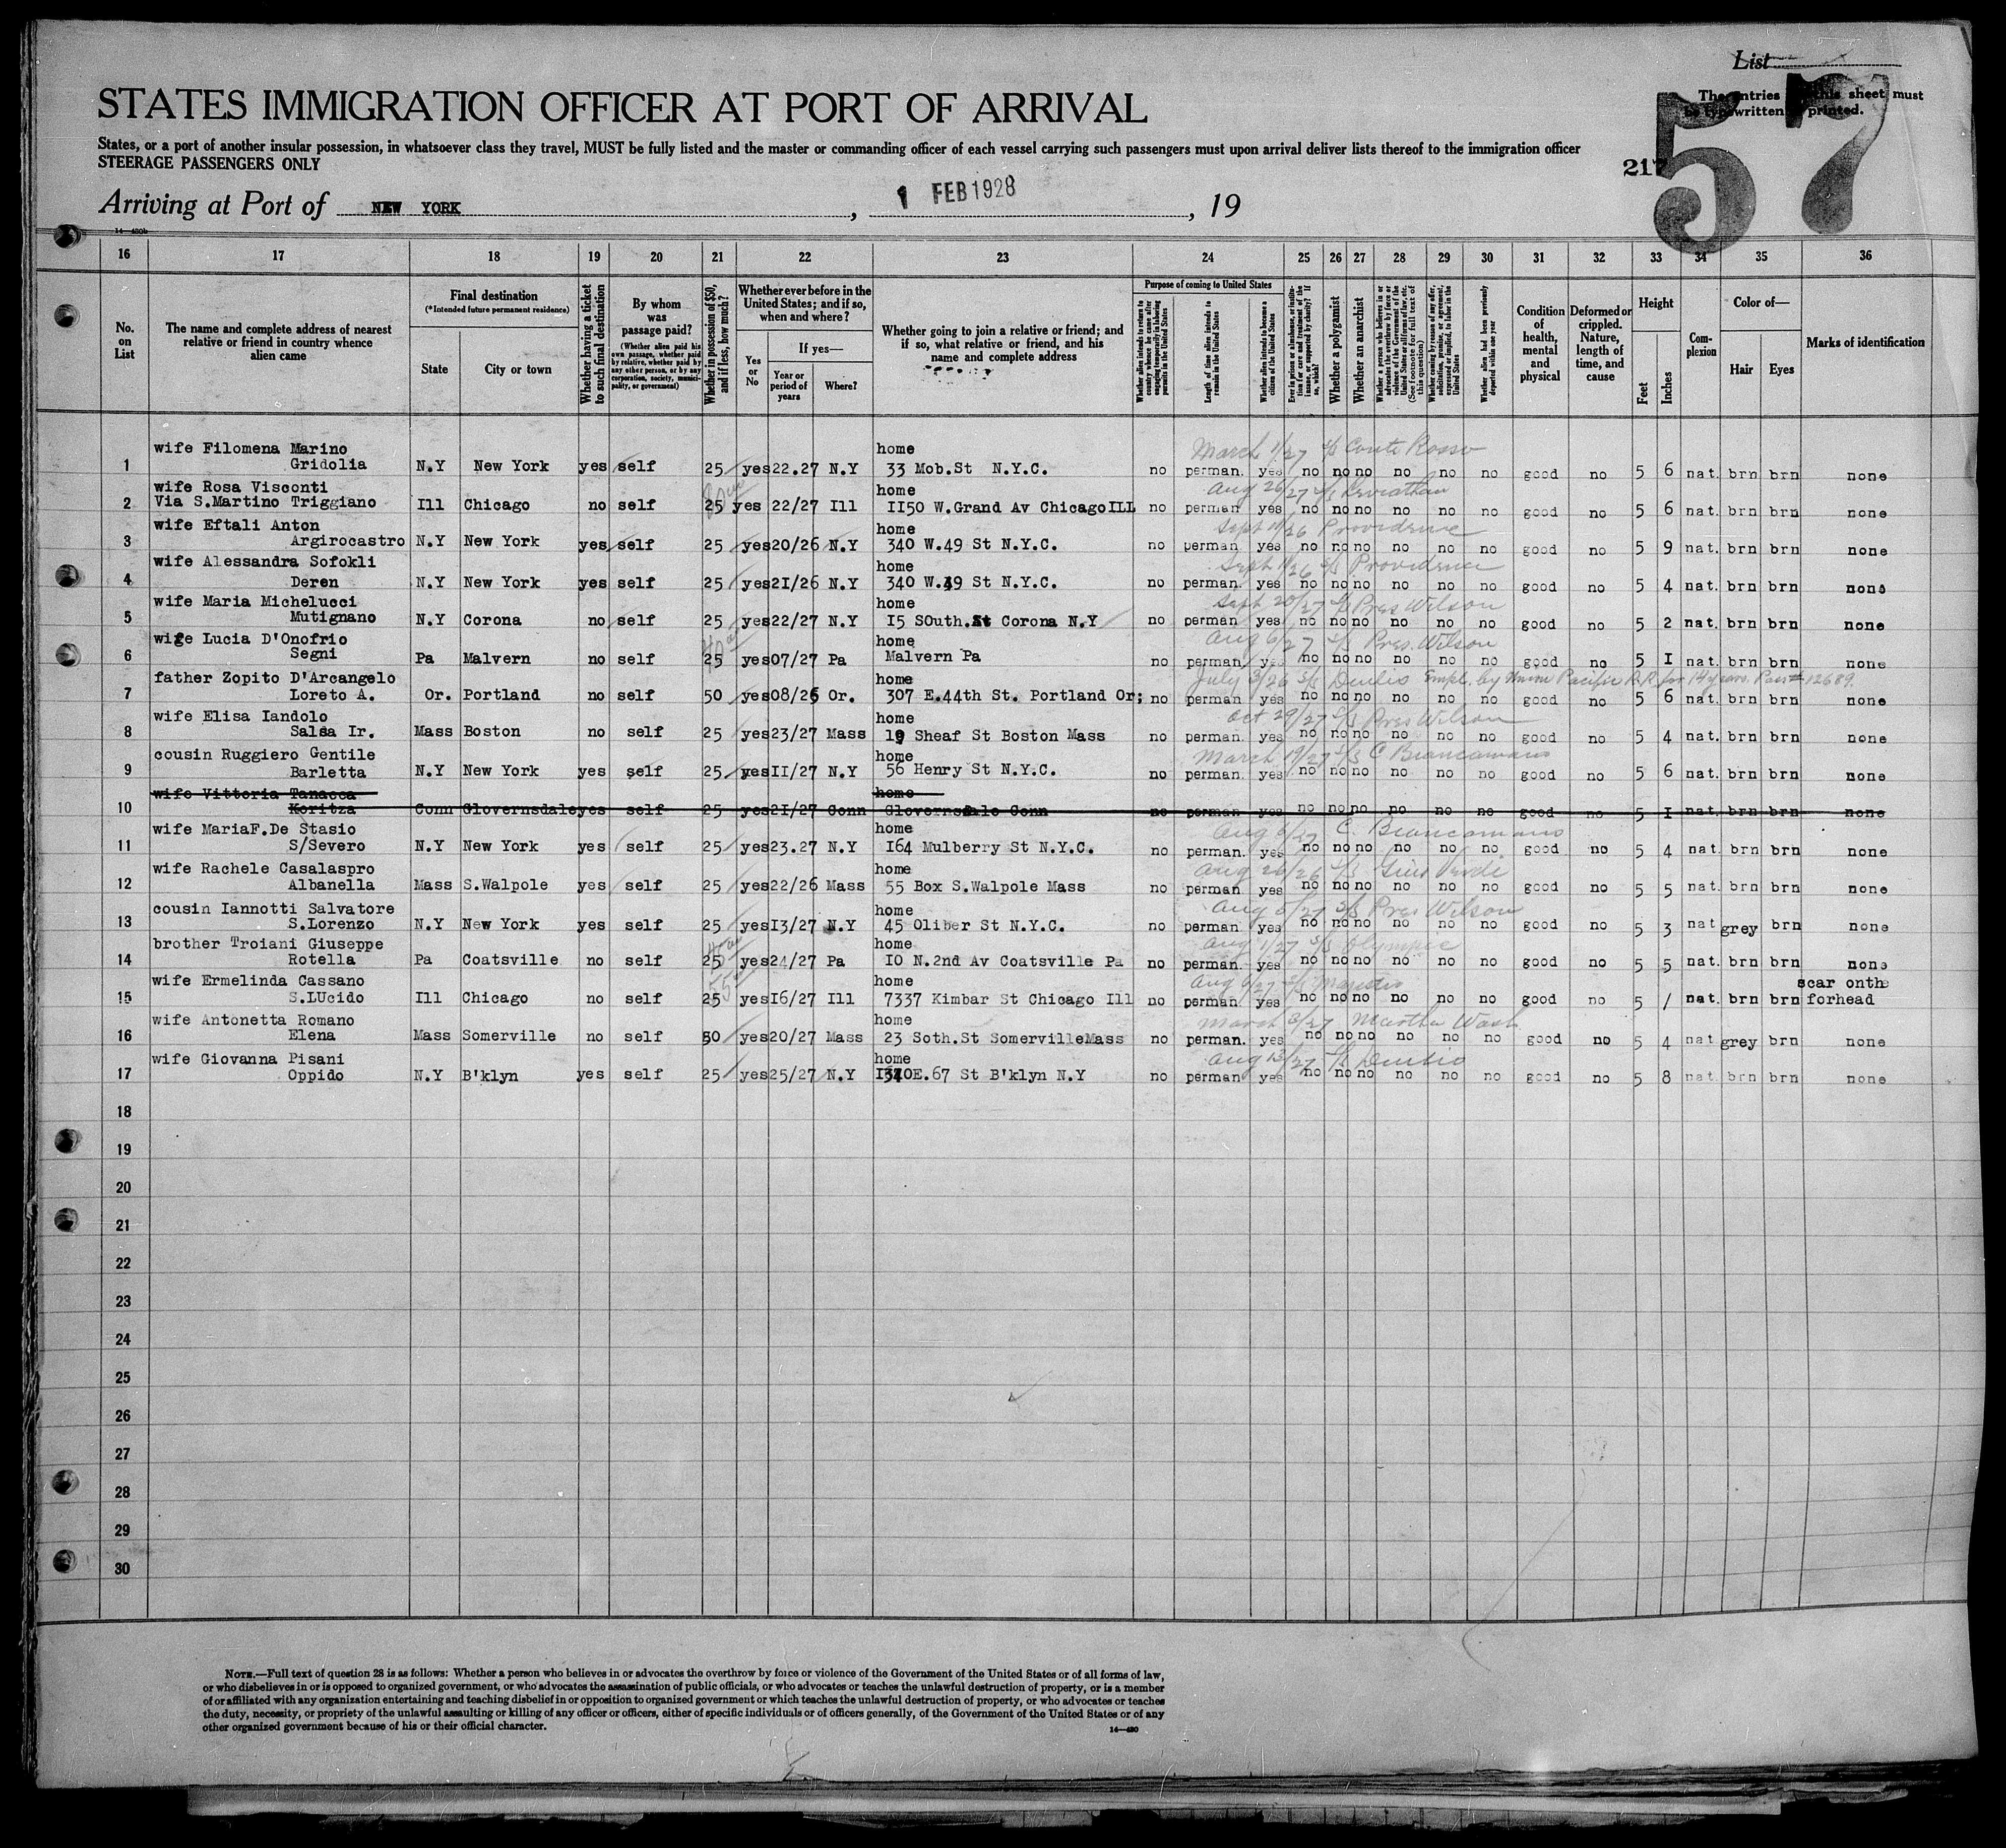 List
The entries this sheet must
be typewritten printed.
57
217
STATES IMMIGRATION OFFICER AT PORT OF ARRIVAL
States, or a port of another insular possession, in whatsoever class they travel, MUST be fully listed and the master or commanding officer of each vessel carrying such passengers must upon arrival deliver lists thereof to the immigration officer
STEERAGE PASSENGERS ONLY
Arriving at Port of NEW YORK, 1 FEB 1928, 19
16 17 18 19 20 21 22 23 24 25 26 27 28 29 30 31 32 33 34 35 36
No. on List
The name and complete address of nearest relative or friend in country whence alien came
Final destination (*Intended future permanent residence)
State
City or town
Whether having a ticket to such final destination
By whom was passage paid?
(Whether alien paid his own passage, whether paid by relative, whether paid by any other person, or by any corporation, society, municipality, or government)
Whether in possession of $50, and if less, how much?
Whether ever before in the United States; and if so, when and where?
Yes or No
If yes—
Year or period of years
Where?
Whether going to join a relative or friend; and if so, what relative or friend, and his name and complete address
Purpose of coming to United States
Length of time alien intends to remain in the United States
Whether alien intends to become a citizen of the United States
Whether a polygamist
Whether an anarchist
Whether alien had been previously deported within one year
Condition of health, mental and physical
Deformed or crippled. Nature, length of time, and cause
Height
Feet
Inches
Complexion
Color of—
Hair
Eyes
Marks of identification
March 1/27 s/s Conte Rosso
1 wife Filomena Marino Gridolia N.Y New York yes self 25 yes 22.27 N.Y home 33 Mob.St N.Y.C. no perman. yes no no no no no no good no 5 6 nat. brn brn none
Aug 26/27 s/s Leviathan
2 wife Rosa Visconti Via S.Martino Triggiano Ill Chicago no self 25 yes 22/27 Ill home II50 W.Grand Av Chicago ILL no perman yes no no no no no no good no 5 6 nat. brn brn none
Sept 11/26 Providence
3 wife Eftali Anton Argirocastro N.Y New York yes self 25 yes 20/26 N.Y home 340 W.49 St N.Y.C. no perman yes no no no no no no good no 5 9 nat. brn brn none
Sept 11/26 s/s Providence
4 wife Alessandra Sofokli Deren N.Y New York yes self 25 yes 2I/26 N.Y home 340 W.49 St N.Y.C. no perman. yes no no no no no no good no 5 4 nat. brn brn none
Sept 20/27 s/s Pres Wilson
5 wife Maria Michelucci Mutignano N.Y Corona no self 25 yes 22/27 N.Y home I5 SOuth.St Corona N.Y no perman yes no no no no no no good no 5 2 nat. brn brn none
Aug 6/27 s/s Pres. Wilson
6 wige Lucia D'Onofrio Segni Pa Malvern no self 25 yes 07/27 Pa home Malvern Pa no perman. yes no no no no no no good no 5 I nat. brn brn none
July 3/26 s/s Duilio Empl. by Union Pacific R.R. for 14 years. Pass# 12689.
7 father Zopito D'Arcangelo Loreto A. Or. Portland no self 50 yes 08/26 Or. home 307 E.44th St. Portland Or; no perman yes no no no no no no good no 5 6 nat. brn brn none
Oct 29/27 s/s Pres Wilson
8 wife Elisa Iandolo Salsa Ir. Mass Boston no self 25 yes 23/27 Mass home 19 Sheaf St Boston Mass no perman. yes no no no no no no good no 5 4 nat. brn brn none
March 19/27 s/s C Biancamano
9 cousin Ruggiero Gentile Barletta N.Y New York yes self 25 yes II/27 N.Y home 56 Henry St N.Y.C. no perman. yes no no no no no no good no 5 6 nat. brn brn none
10 wife Vittoria Tanacca Koritza Conn Glovernsdale yes self 25 yes 2I/27 Conn home Glovernsdale Conn no perman yes no no no no no no good no 5 I nat. brn brn none
Aug 6/27 C. Biancamano
11 wife MariaF.De Stasio S/Severo N.Y New York yes self 25 yes 23.27 N.Y home I64 Mulberry St N.Y.C. no perman. yes no no no no no no good no 5 4 nat. brn brn none
Aug 26/26 s/s Gius Verdi
12 wife Rachele Casalaspro Albanella Mass S.Walpole yes self 25 yes 22/26 Mass home 55 Box S.Walpole Mass no perman yes no no no no no no good no 5 5 nat. brn brn none
Aug 5/27 s/s Pres Wilson
13 cousin Iannotti Salvatore S.Lorenzo N.Y New York yes self 25 yes I3/27 N.Y home 45 Oliber St N.Y.C. no perman. yes no no no no no no good no 5 3 nat grey brn none
Aug 1/27 s/s Olympic
14 brother Troiani Giuseppe Rotella Pa Coatsville no self 25 yes 24/27 Pa home IO N.2nd Av Coatsville Pa no perman. yes no no no no no no good no 5 5 nat. brn brn none
Aug 6/27 s/s Majestic
15 wife Ermelinda Cassano S.LUcido Ill Chicago no self 25 yes I6/27 Ill home 7337 Kimbar St Chicago Ill no perman yes no no no no no no good no 5 / nat. brn brn scar onthe forhead
March 3/27 Martha Wash
16 wife Antonetta Romano Elena Mass Somerville no self 50 yes 20/27 Mass home 23 Soth.St SomervilleMass no perman. yes no no no no no no good no 5 4 nat grey brn none
Aug 13/27 s/s Duilio
17 wife Giovanna Pisani Oppido N.Y B'klyn yes self 25 yes 25/27 N.Y home E.67 St B'klyn N.Y no perman yes no no no no no no good no 5 8 nat. brn brn none
18
19
20
21
22
23
24
25
26
27
28
29
30
NOTE.—Full text of question 28 is as follows: Whether a person who believes in or advocates the overthrow by force or violence of the Government of the United States or of all forms of law,
or who disbelieves in or is opposed to organized government, or who advocates the assassination of public officials, or who advocates or teaches the unlawful destruction of property, or is a member
of or affiliated with any organization entertaining and teaching disbelief in or opposition to organized government or which teaches the unlawful destruction of property, or who advocates or teaches
the duty, necessity, or propriety of the unlawful assaulting or killing of any officer or officers, either of specific individuals or of officers generally, of the Government of the United States or of any
other organized government because of his or their official character.
14—480